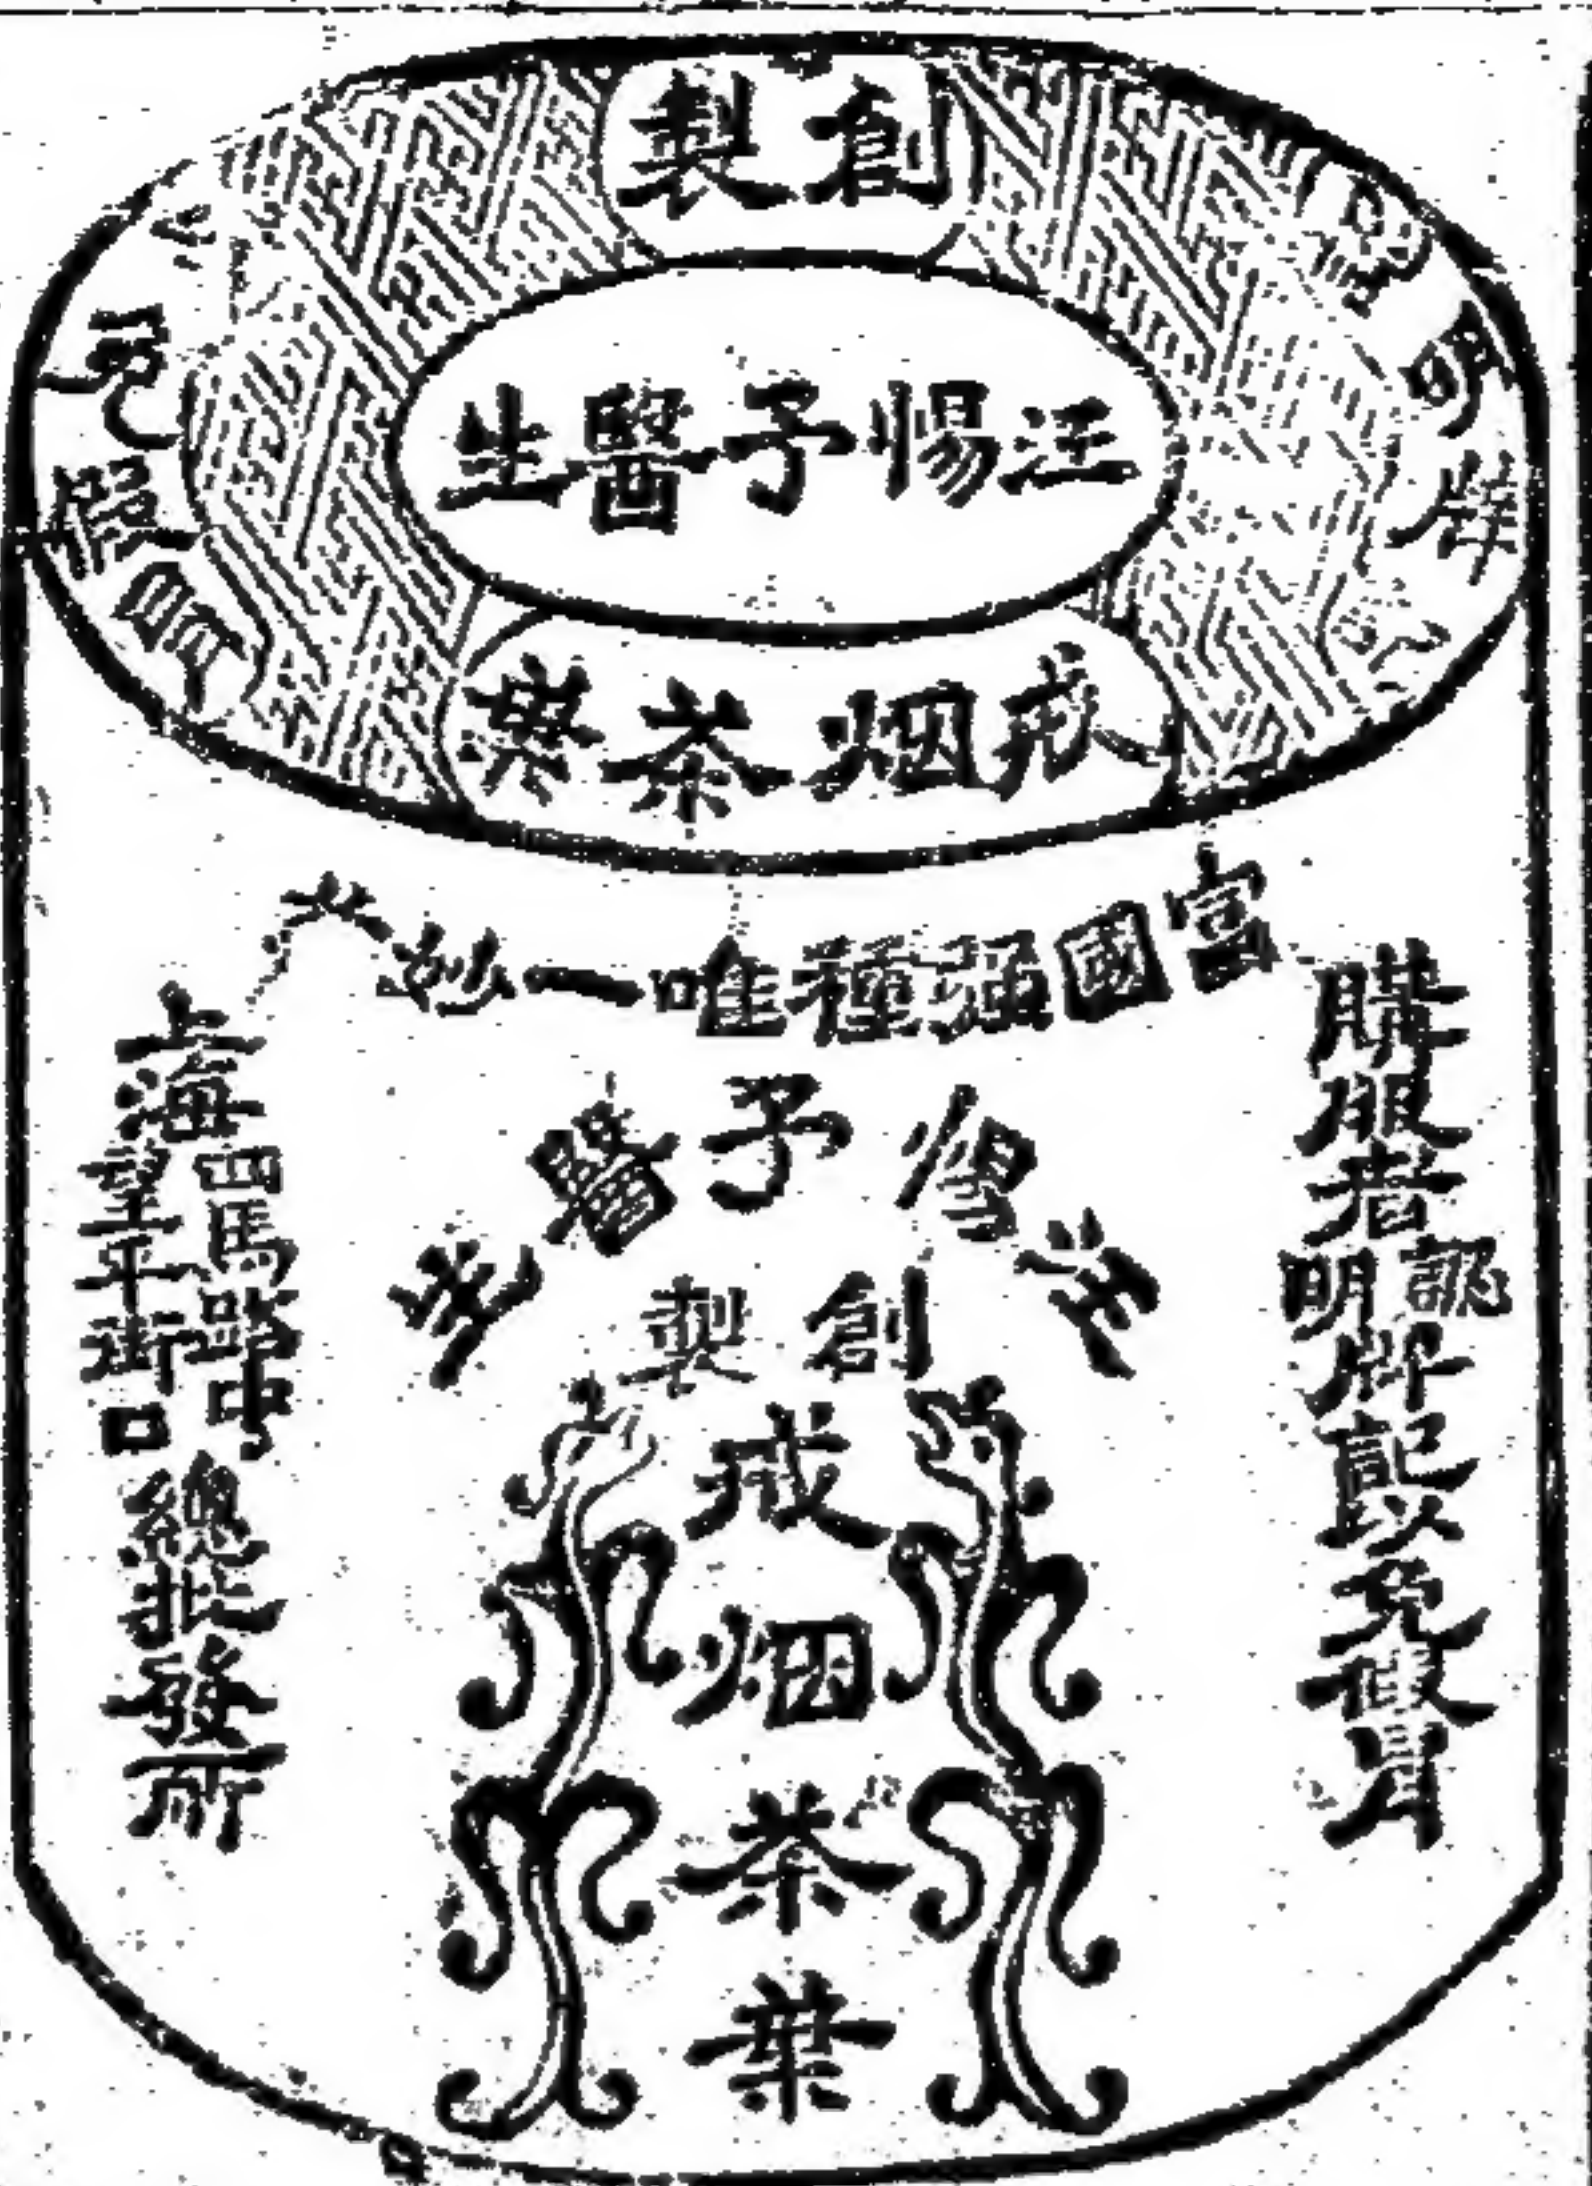 創製
汪惕予醫生
戒烟茶葉
認明牌記
以免假冒
富國强種唯一妙品
購服者認明牌記以免假冒
汪惕予醫生
創製
戒烟茶葉
上海四馬路中望平街口總批發所